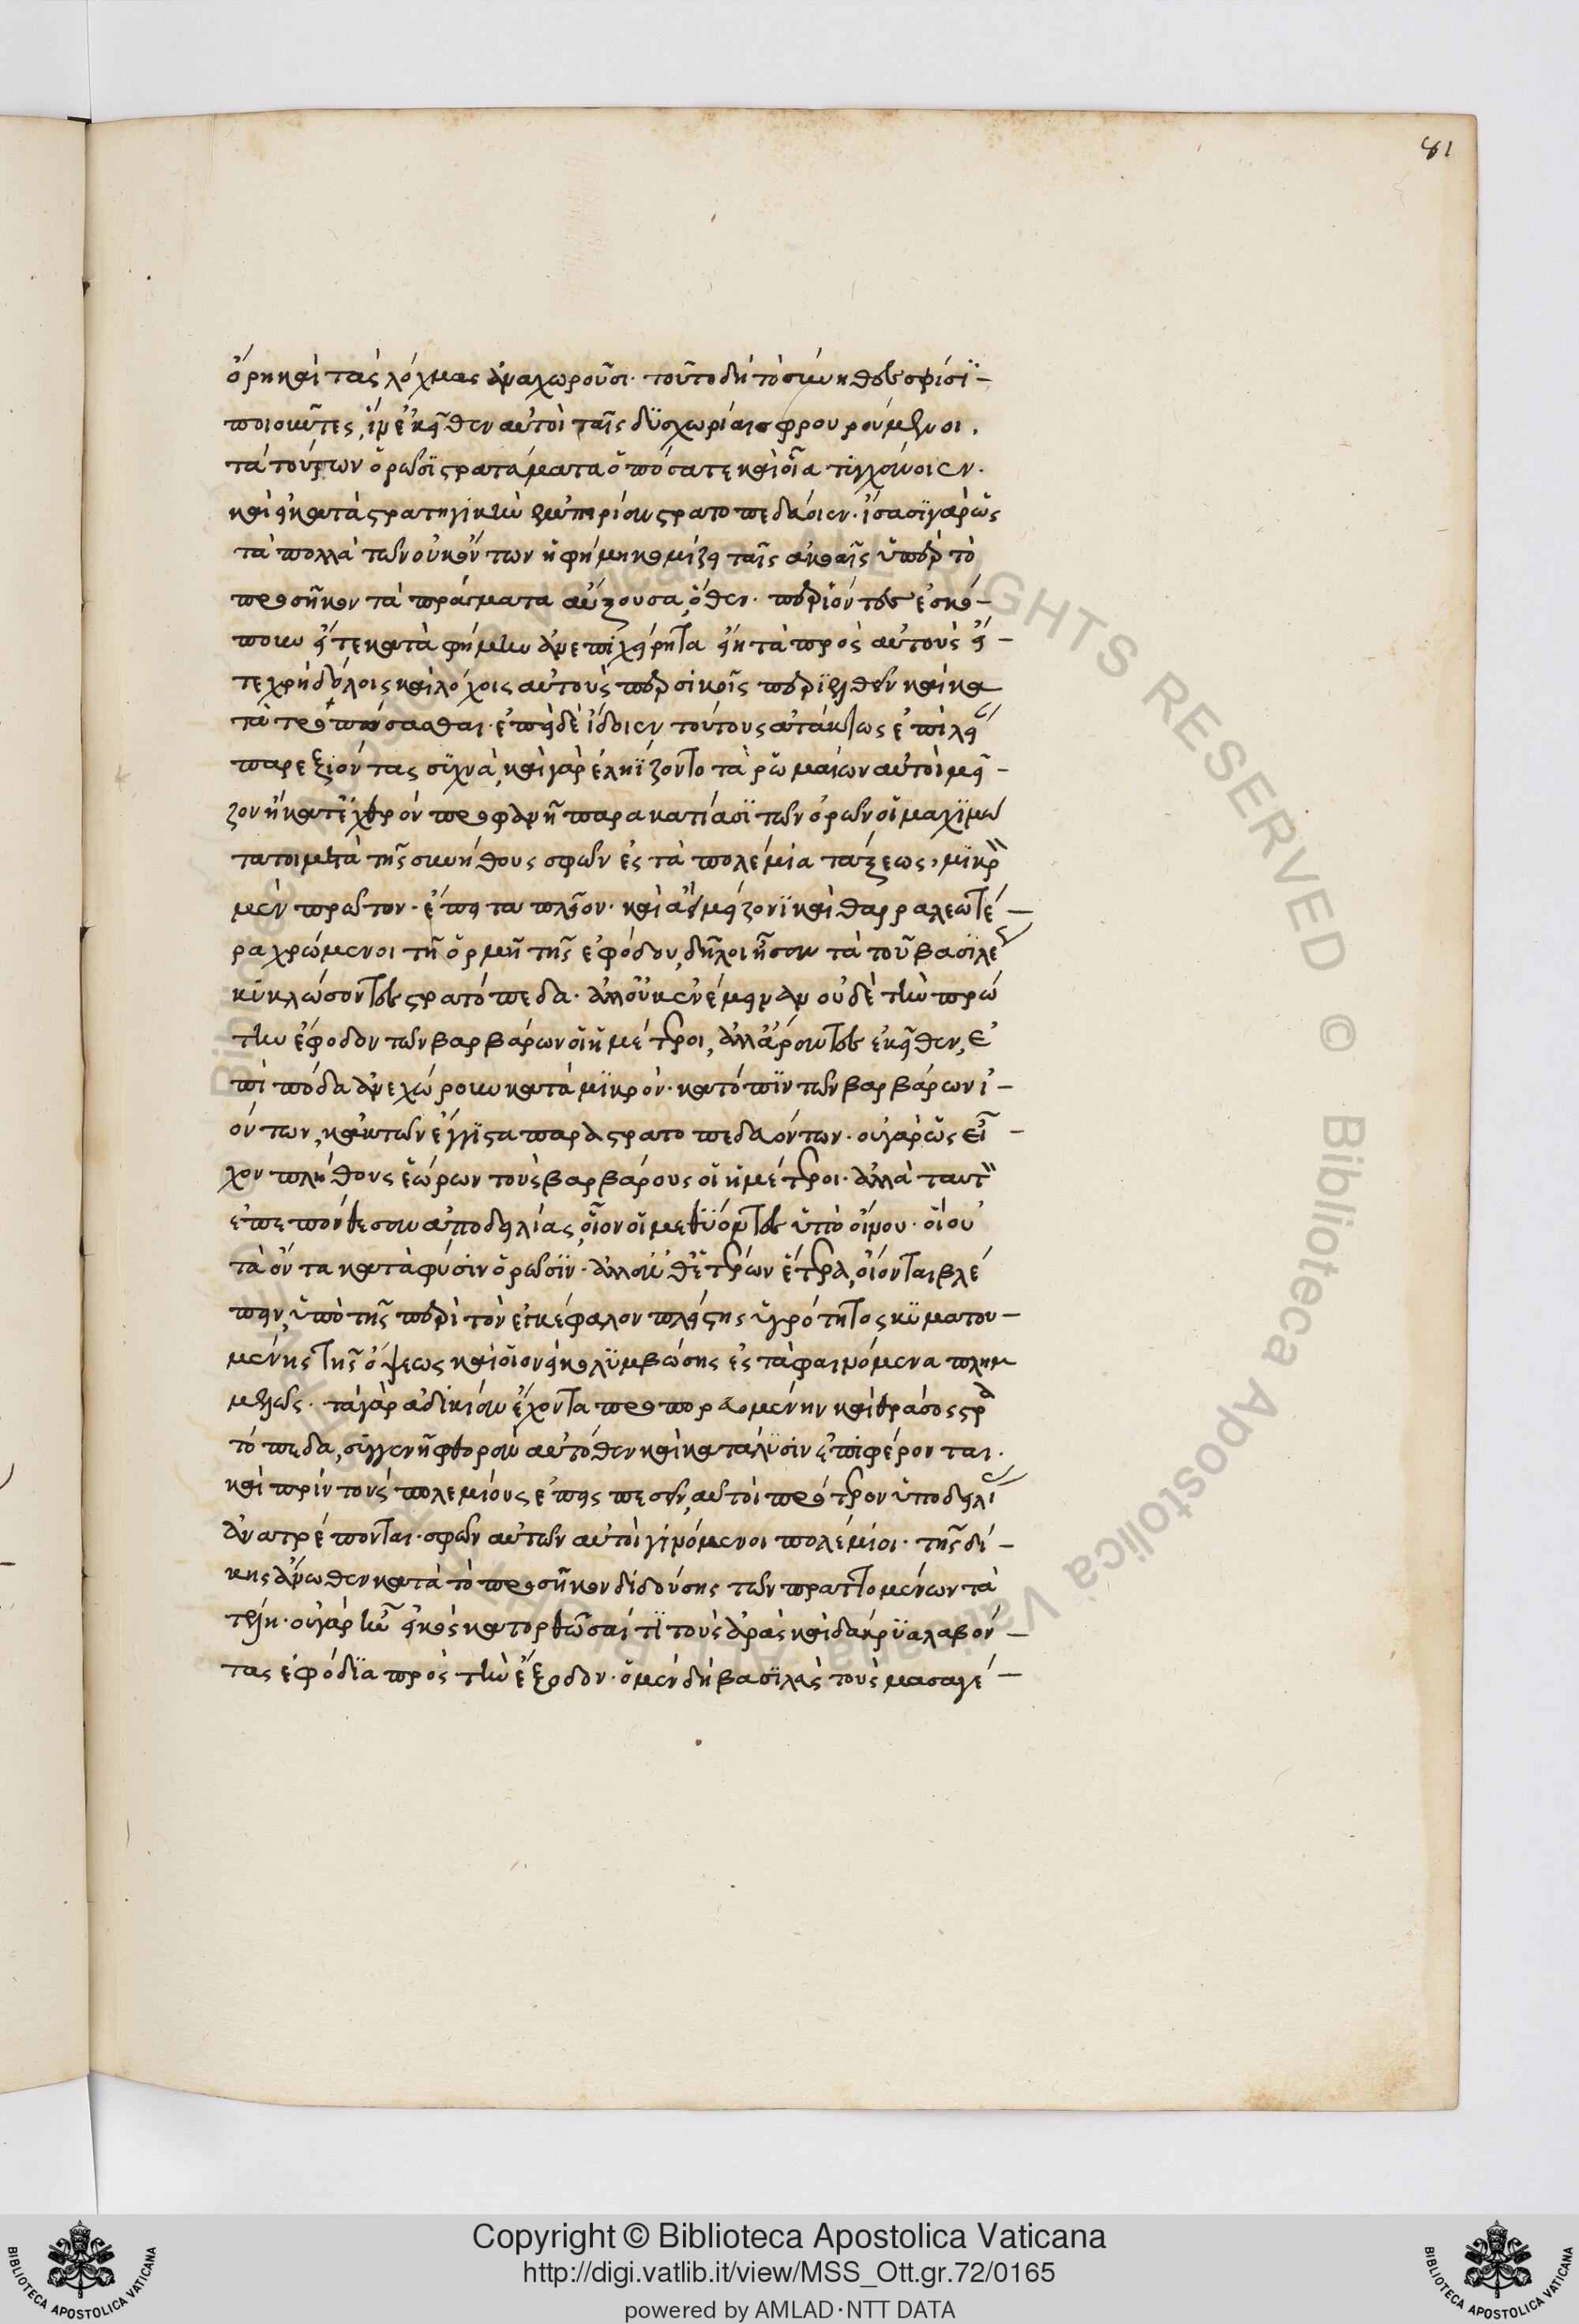 81
ὄρη καὶ τὰς λόχμας ἀναχωροῦσι· τοῦτο δὴ τὸ σύνηθες σφίσι
ποιοῦντες, ἵν' ἐκεῖθεν αὐτοὶ ταῖς δυσχωρίαις φρουρούμενοι,
τὰ τούτων ὁρῶσι στρατεύματα ὁπόσα τε καὶ οἷα τυγχάνοιεν·
καὶ εἰ κατὰ στρατηγικὴν ἐμπειρίαν στρατοπεδεύοιεν· ἴσασι γὰρ ὡς
τὰ πολλὰ τῶν οὐκ ὄντων ἡ φήμη κομίζει ταῖς ἀκοαῖς ὑπὲρ τὸ
προσῆκον τὰ πράγματα αὔξουσα, ὅθεν· περιιόντες ἐσκό-
πουν εἴτε κατὰ φήμην ἀνεπιχείρητα εἴη τὰ πρὸς αὐτοὺς εἴ-
τε χρὴ δόλοις καὶ λόχοις αὐτοὺς περσικοῖς περιελθεῖν καὶ κα
τατροπώσασθαι· ἐπεὶ δὲ ἴδοιεν τούτους ἀτάκτως ἐπὶ λείαν
παρεξιόντας συχνὰ, καὶ γὰρ ἐληΐζοντο τὰ ῥωμαίων αὐτοὶ μεῖ-
ζον ἢ κατ' ἐχθρὸν προφανῆ παρακατίασι τῶν ὀρῶν οἱ μαχιμώ
τατοι μετὰ τῆς συνήθους σφῶν ἐς τὰ πολέμια τάξεως, μικρὸν
μὲν πρῶτον· ἔπειτα πλεῖον· καὶ ἀεὶ μείζονι καὶ θαρραλεωτέ-
ρα χρώμενοι τῇ ὁρμῇ τῆς ἐφόδου, δῆλοι ἦσαν τὰ τοῦ βασιλέως
κυκλώσοντες στρατόπεδα· ἀλλ' οὐκ ἐνέμειναν οὐδὲ τὴν πρώ
την ἔφοδον τῶν βαρβάρων οἱ ἡμέτεροι, ἀλλ' ἄραντες ἐκεῖθεν, ἐ
πὶ πόδα ἀνεχώρουν κατὰ μικρὸν· κατόπιν τῶν βαρβάρων ἰ-
όντων, κἀκ τῶν ἔγγιστα παραστρατοπεδευόντων· οὐ γὰρ ὡς εἶ-
χον πλήθους ἑώρων τοὺς βαρβάρους οἱ ἡμέτεροι· ἀλλὰ ταυτὸν
ἐπεπόνθεσαν ἀπὸ δειλίας, οἷον οἱ μεθύοντες ὑπὸ οἴνου· οἳ οὐ
τὰ ὄντα κατὰ φύσιν ὁρῶσιν· ἀλλ' ἀνθ' ἑτέρων ἕτερα, οἴονται βλέ
πειν, ὑπὸ τῆς περὶ τὸν ἐγκέφαλον πλείστης ὑγρότητος κυματου-
μένης τῆς ὄψεως καὶ οἱονεὶ κολυμβώσης ἐς τὰ φαινόμενα πλημ
μελῶς· τὰ γὰρ ἀδικίαν ἔχοντα προπορευομένην καὶ θράσος στρα
τόπεδα, συγγενῆ φθορὰν αὐτόθεν καὶ κατάλυσιν ἐπιφέρονται·
καὶ πρὶν τοὺς πολεμίους ἐπεισπεσεῖν, αὐτοὶ πρότερον ὑπὸ δειλίας
ἀνατρέπονται· σφῶν αὐτῶν αὐτοὶ γινόμενοι πολέμιοι· τῆς δί-
κης ἄνωθεν κατὰ τὸ προσῆκον διδούσης τῶν πραττομένων τὰ
τέλη· οὐ γὰρ ἦν εἰκὸς κατορθῶσαί τι τοὺς ἀρὰς καὶ δάκρυα λαβόν-
τας ἐφόδια πρὸς τὴν ἔξοδον· ὁ μὲν δὴ βασιλεὺς τοὺς μασαγέ-
Copyright © Biblioteca Apostolica Vaticana
http://digi.vatlib.it/view/MSS_Ott.gr.72/0165
powered by AMLAD·NTT DATA